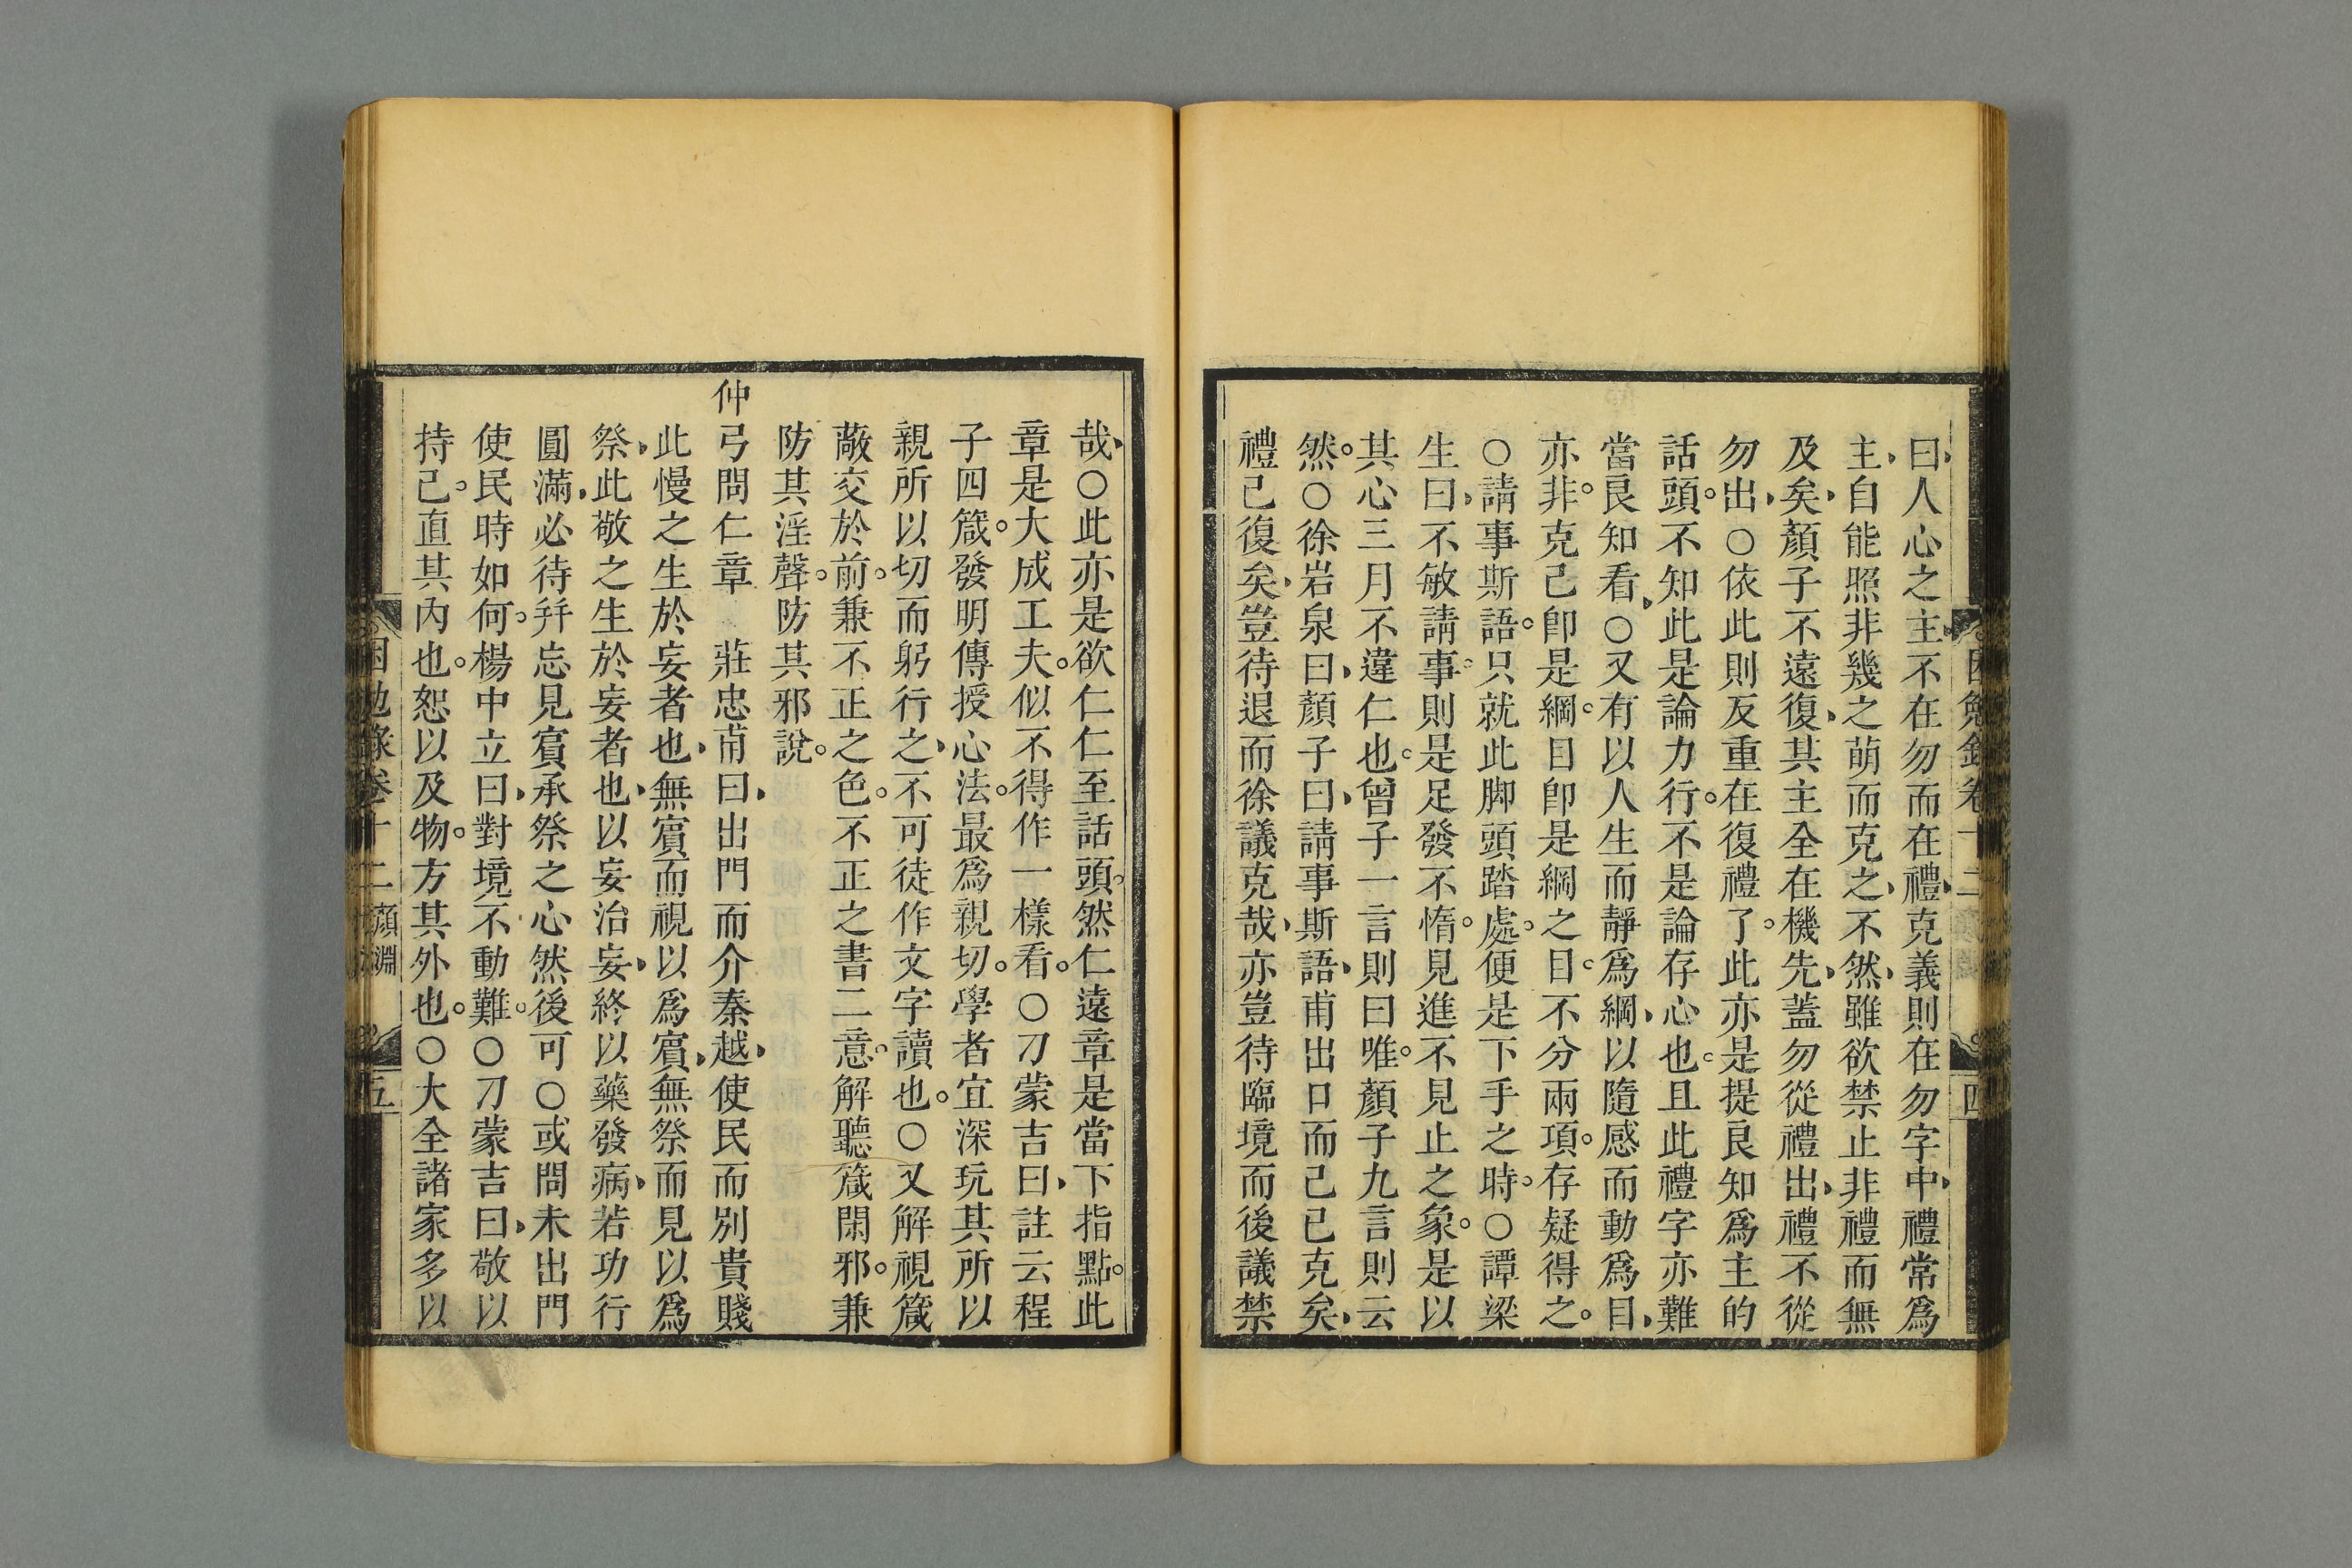 曰人心之主不在勿而在禮克義則在勿字中禮常爲
主自能照非幾之萌而克之不然雖欲禁止非禮而無
及矣顏子不遠復其主全在機先蓋勿從禮出禮不從
勿出○依此則反重在復禮了此亦是提良知爲主的
話頭不知此是論力行不是論存心也且此禮字亦難
當良知看○又有以人生而靜爲綱以隨感而動爲目
亦非克己卽是綱目卽是綱之目不分兩項存疑得之
○請事斯語只就此脚頭踏處便是下手之時○譚梁
生曰不敏請事則是足發不惰見進不見止之象是以
其心三月不違仁也曾子一言則曰唯顏子九言則云
然○徐岩泉曰顏子曰請事斯語甫出口而己已克矣
禮已復矣豈待退而徐議克哉亦豈待臨境而後議禁
四
哉○此亦是欲仁仁至話頭然仁遠章是當下指點此
章是大成工夫似不得作一樣看○刀蒙吉曰註云程
子四箴發明傳授心法最爲親切學者宜深玩其所以
親所以切而躬行之不可徒作文字讀也○又解視箴
蔽交於前兼不正之色不正之書二意解聽箴閑邪兼
防其淫聲防其邪說
仲弓問仁章　莊忠甫曰出門而介秦越使民而別貴賤
此慢之生於妄者也無賓而視以爲賓無祭而見以爲
祭此敬之生於妄者也以妄治妄終以藥發病若功行
圓滿必待并忘見賓承祭之心然後可○或問未出門
使民時如何楊中立曰對境不動難○刀蒙吉曰敬以
持己直其內也恕以及物方其外也○大全諸家多以
困勉錄卷十二 顏淵
五